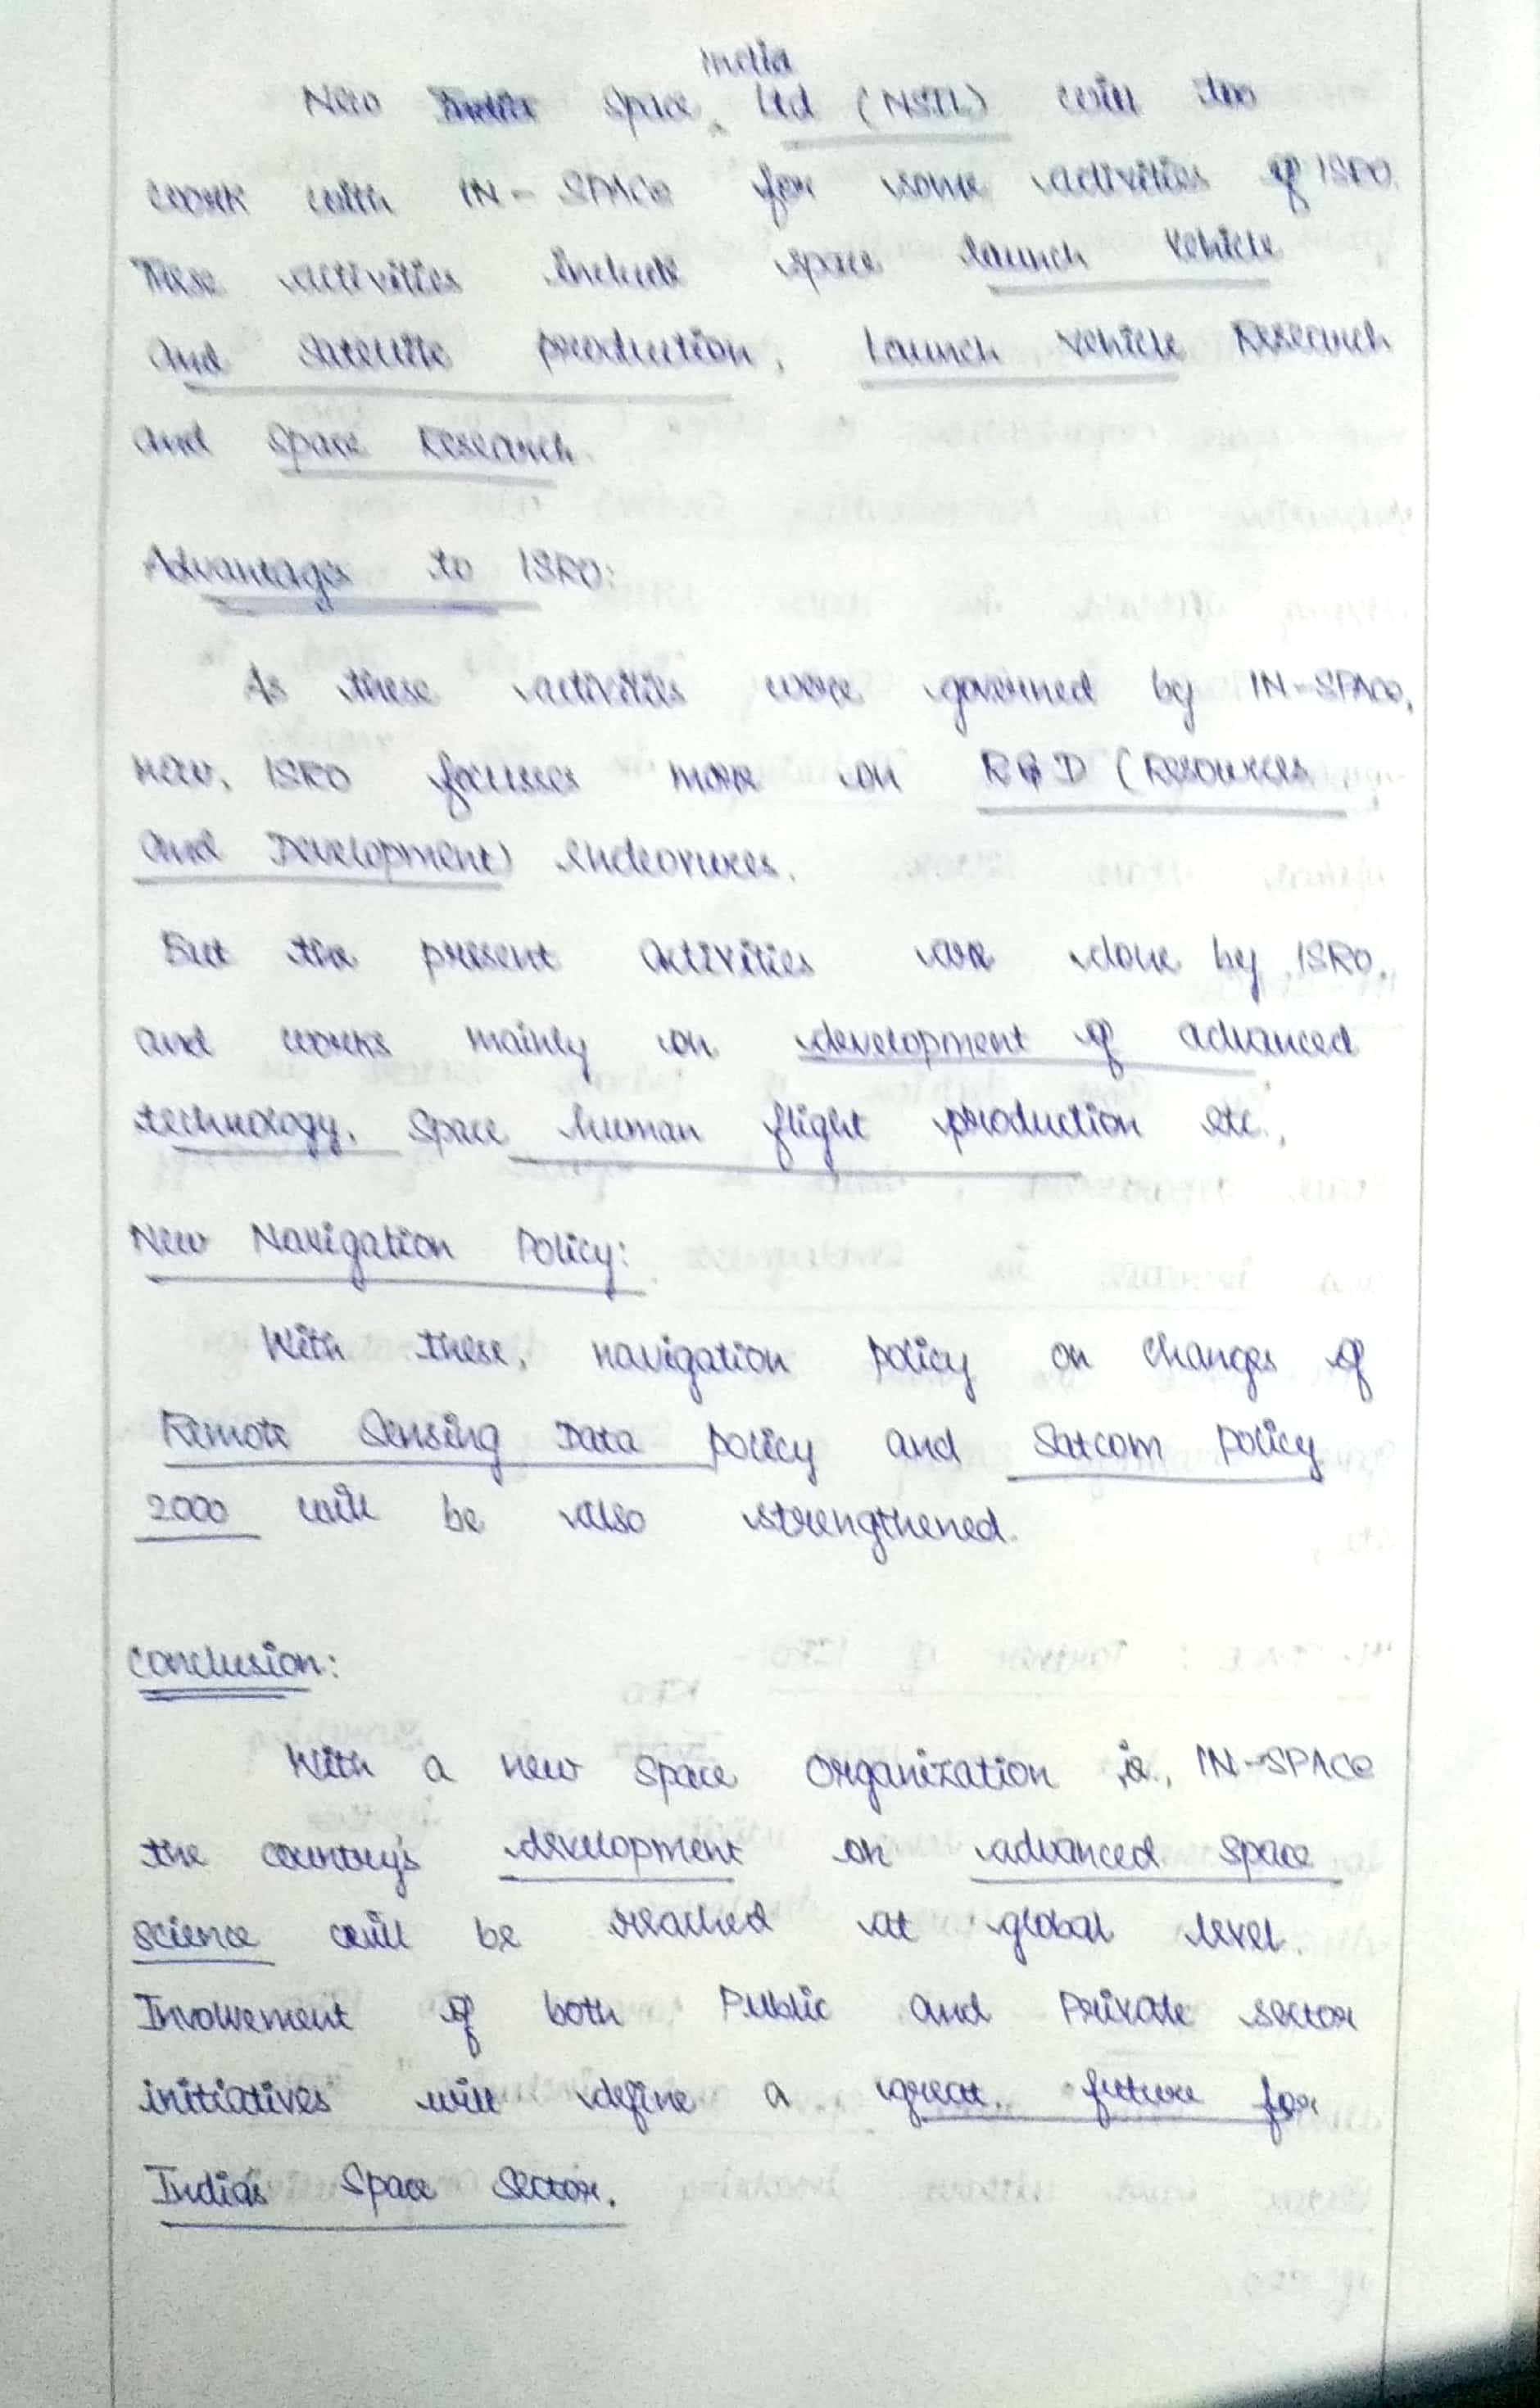 New Space India Ltd (NSIL) will too
work with IN-SPACe for some activities of ISRO.
These activities include space launch vehicle
and satellite production, launch vehicle Research
and Space Research.
Advantages to ISRO:
As these activities were governed by IN-SPACe,
now, ISRO focusses more on R&D (Resources
and Development) endeavours.
But the present activities are done by ISRO,
and works mainly on development of advanced
technology, space human flight production etc.,
New Navigation Policy:
With these, navigation policy on changes of
Remote Sensing Data policy and Satcom policy
2000 will be also strengthened.
Conclusion:
With a new space organization ie., IN-SPACe
the country's development on advanced space
science will be reached at global level.
Involvement of both Public and Private sector
initiatives will define a great future for
India's Space Sector.